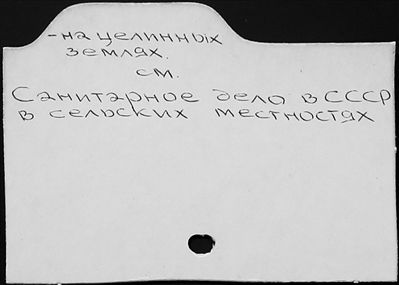 - на целинных
землях.
см.
Санитарное дело в СССР
в сельских местностях